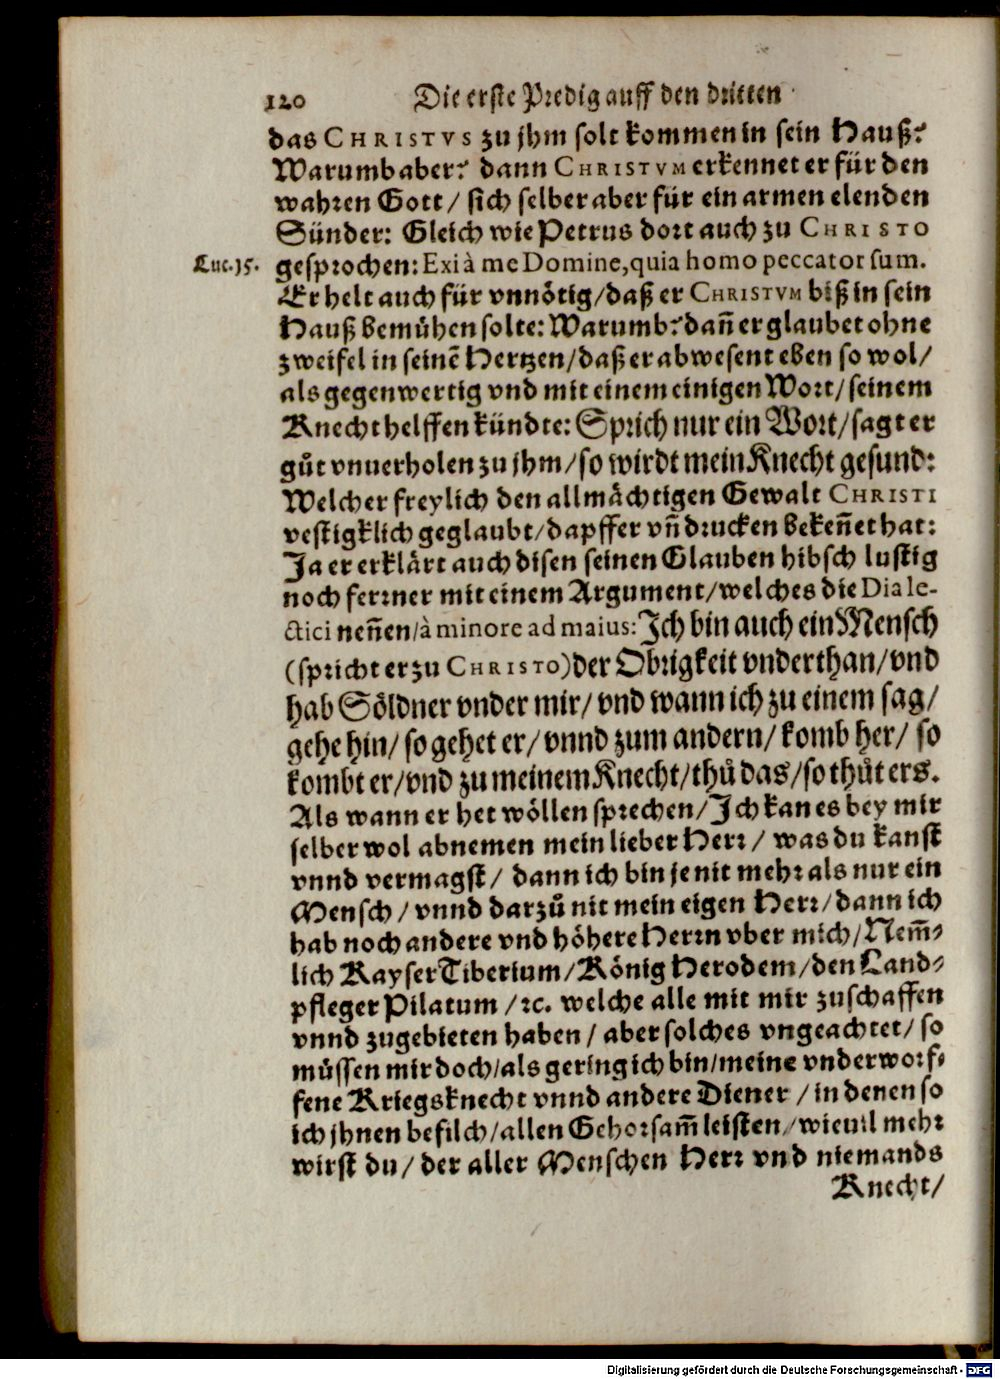 120 Die erste Predig auff den dritten
das CHRISTVS zu jhm solt kommen in sein Hauß?
Warumb aber? dann CHRISTVM erkennet er für den
wahren Gott / sich selber aber für ein armen elenden
Sünder: Gleich wie Petrus dort auch zu CHRISTO
Luc. 15.
gesprochen: Exi à me Domine, quia homo peccator sum.
Er helt auch für vnnötig / daß er CHRISTVM biß in sein
Hauß bemühen solte: Warumb? dañ er glaubet ohne
zweifel in seinē Hertzen / daß er abwesent eben so wol /
als gegenwertig vnd mit einem einigen Wort / seinem
Knecht helffen kündte: Sprich nur ein Wort / sagt er
gůt vnuerholen zu jhm / so wirdt mein Knecht gesund:
Welcher freylich den allmächtigen Gewalt CHRISTI
vestigklich geglaubt / dapffer vñ drucken bekeñet hat:
Ja er erklärt auch disen seinen Glauben hibsch lustig
noch ferrner mit einem Argument / welches die Diale-
ctici neñen / à minore ad maius: Ich bin auch ein Mensch
(spricht er zu CHRISTO) der Obrigkeit vnderthan / vnd
hab Söldner vnder mir / vnd wann ich zu einem sag /
gehe hin / so gehet er / vnnd zum andern / komb her / so
kombt er / vnd zu meinem Knecht / thů das / so thůt ers.
Als wann er het wöllen sprechen / Ich kan es bey mir
selber wol abnemen mein lieber Herr / was du kanst
vnnd vermagst / dann ich bin je nit mehr als nur ein
Mensch / vnnd darzů nit mein eigen Herr / dann ich
hab noch andere vnd höhere Herrn vber mich / Nem̃-
lich Kayser Tiberium / König Herodem / den Land-
pfleger Pilatum / ꝛc. welche alle mit mir zuschaffen
vnnd zugebieten haben / aber solches vngeachtet / so
müssen mir doch / als gering ich bin / meine vnderworf-
fene Kriegsknecht vnnd andere Diener / in denen so
ich jhnen befilch / allen Gehorsam̃ leisten / wieuil mehr
wirst du / der aller Menschen Herr vnd niemands
Knecht /
Digitalisierung gefördert durch die Deutsche Forschungsgemeinschaft - DFG